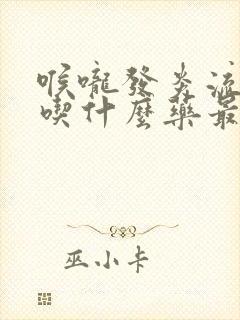 喉嚨發炎流
喫什麼藥最
巫小卡